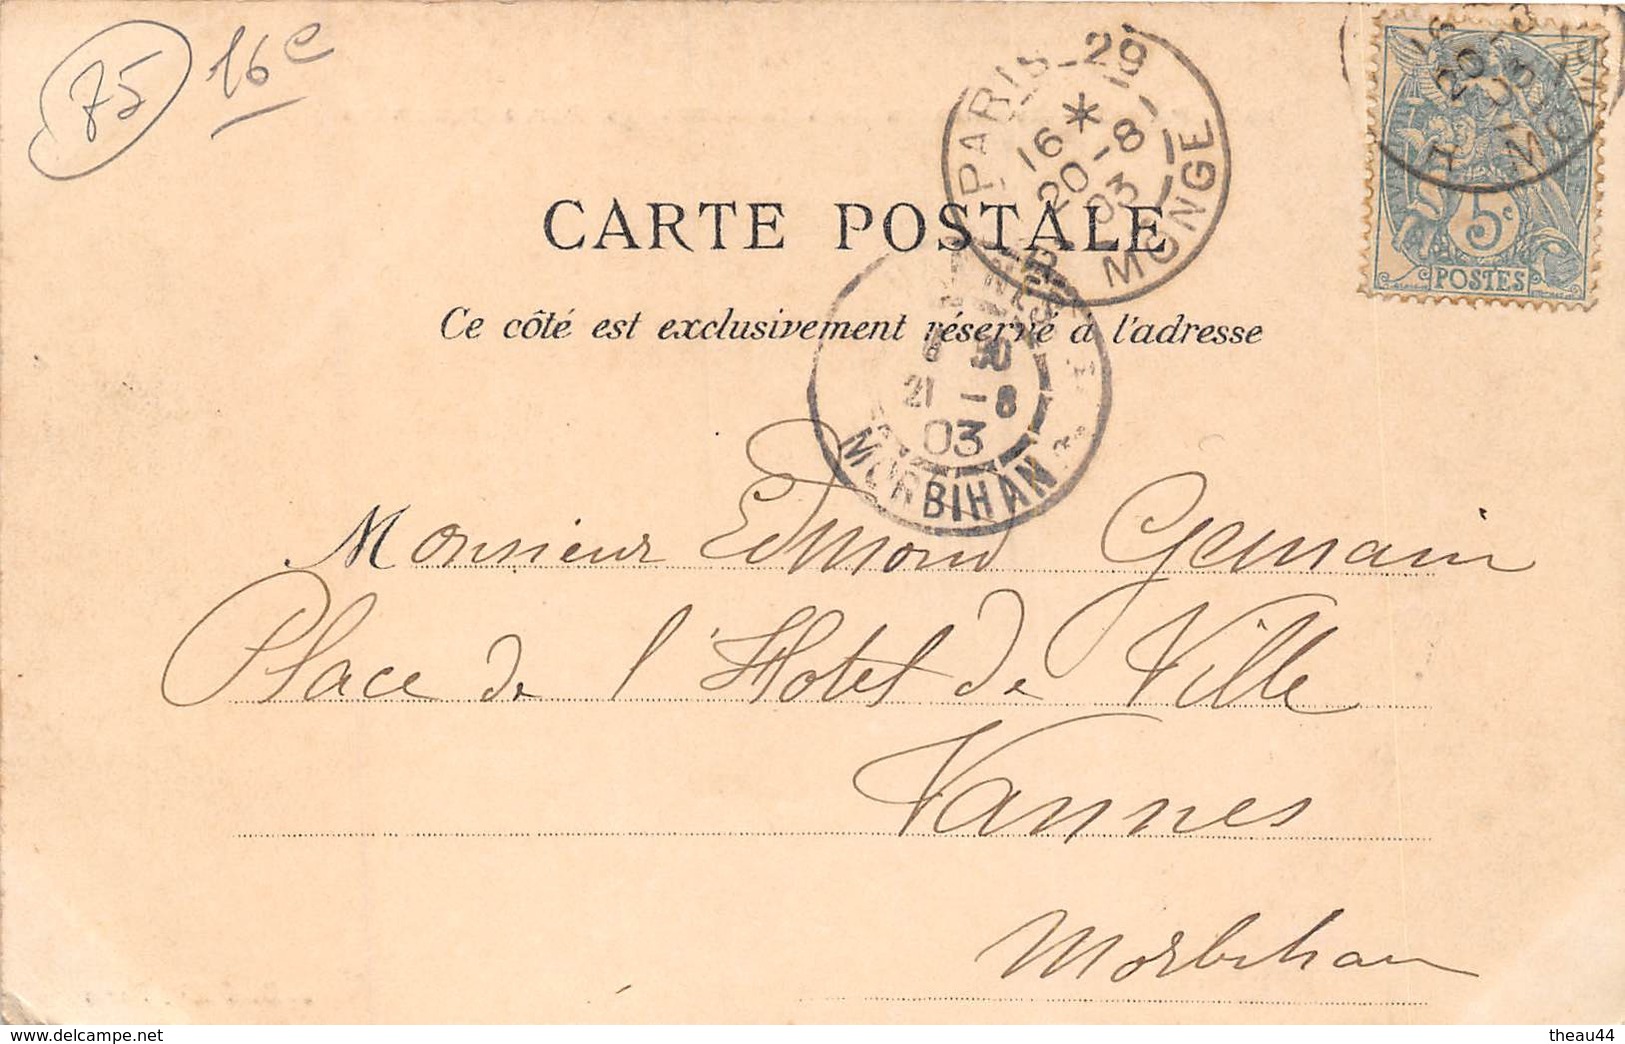 75 16e
PARIS_29
16 *
20-8
03
MONGE
16
20-8
03
5c
POSTES
CARTE POSTALE
Ce côté est exclusivement réservé à l'adresse
21 -8
03
MORBIHAN
Monsieur Edmond Germain
Place de l'Hotel de Ville
Vannes
Morbihan
www.delcampe.net
theau44